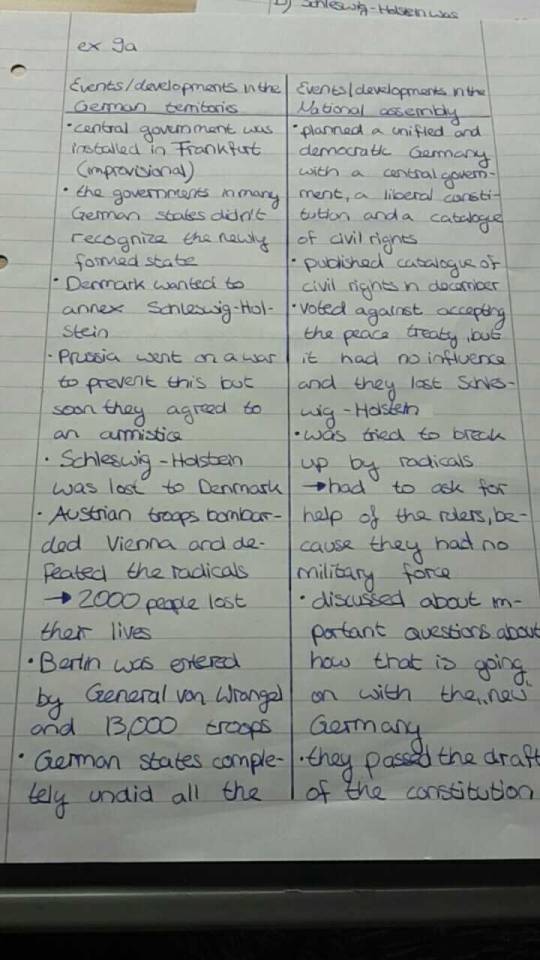 D) Schleswig-Holstein was
ex 9a
Events/developments in the
German territories
• central government was
installed in Frankfurt
(improvisional)
• the governments in many
German states didn't
recognize the newly
formed state
• Denmark wanted to
annex Schleswig-Hol-
stein
• Prussia went on a war
to prevent this but
soon they agreed to
an armistice
• Schleswig-Holstein
was lost to Denmark
• Austrian troops bombar-
ded Vienna and de-
feated the radicals
→ 2000 people lost
their lives
• Berlin was entered
by General von Wrangel
and 13,000 troops
• German states comple-
tely undid all the
Events/developments in the
National assembly
• planned a unified and
democratic Germany
with a central govern-
ment, a liberal consti-
tution and a catalogue
of civil rights
• published catalogue of
civil rights in december
• voted against accepting
the peace treaty, but
it had no influence
and they lost Schles-
wig-Holstein
• was tried to break
up by radicals
→ had to ask for
help of the rulers, be-
cause they had no
military force
• discussed about im-
portant questions about
how that is going
on with the „new"
Germany
• they passed the draft
of the constitution